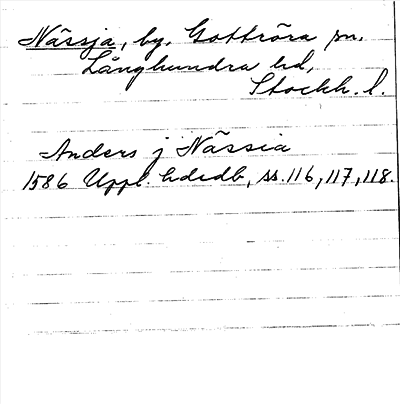 Nässja, by, Gottröra sn,
Långhundra hd,
Stockh. l.
Anders j Nässia
1586 Uppl. hdrdb, ss. 116, 117, 118.